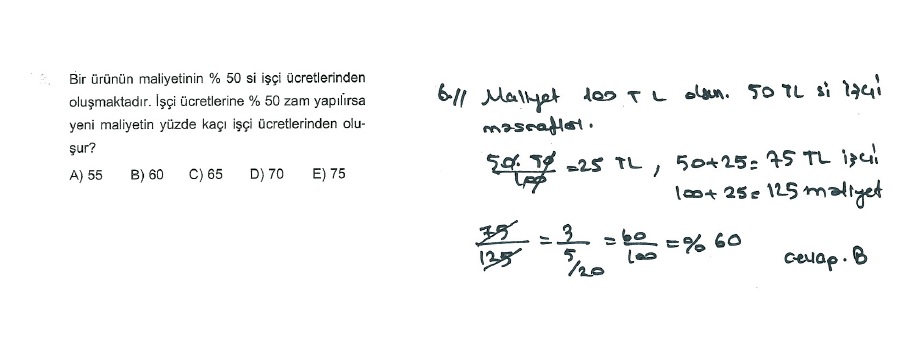 Bir ürünün maliyetinin % 50 si işçi ücretlerinden
oluşmaktadır. İşçi ücretlerine % 50 zam yapılırsa
yeni maliyetin yüzde kaçı işçi ücretlerinden olu-
şur?
A) 55 B) 60 C) 65 D) 70 E) 75
6// Maliyet 100 TL olsun. 50 TL si işçi
masrafları.
50. 50/100 = 25 TL, 50+25= 75 TL işçi
100+ 25= 125 maliyet
75/125 = 3/5 /20 = 60/100 = % 60
cevap. B